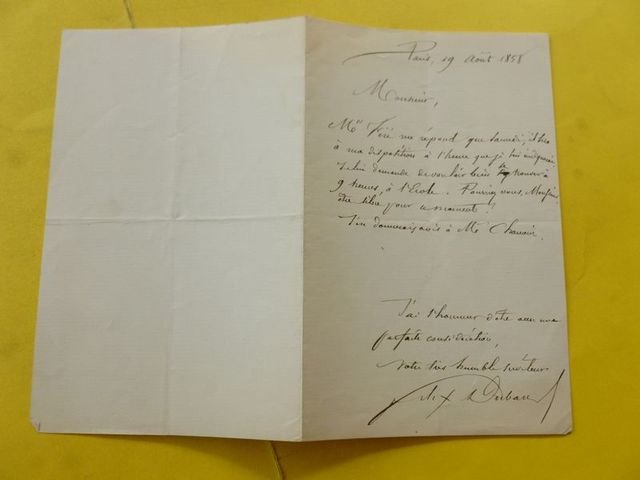 Paris, 19 Août 1858
Monsieur,
me répond que samedi, il sera
à ma disposition à l'heure que je lui indiquerai.
Je lui demande de vouloir bien se trouver à
9 heures, à l'Ecole. Pourriez vous, Monsieur
être libre pour ce moment?
J'en donnerais avis à Mr
J'ai l'honneur d'être avec une
parfaite considération,
votre très humble serviteur